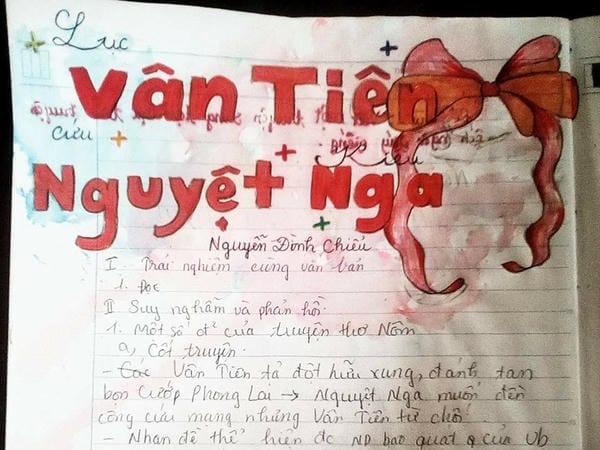 Lục
Vân Tiên
Cứu
Kiều
Nguyệt Nga
Nguyễn Đình Chiểu
I. Trải nghiệm cùng văn bản
1. Đọc
II Suy nghẫm và phản hồi
1. Một số đ² của truyện thơ Nôm
a, Cốt truyện.
- Vân Tiên tả đột hữu xung, đánh tan
bọn cướp Phong Lai → Nguyệt Nga muốn đền
công cứu mạng nhưng Vân Tiên từ chối
- Nhan đề thể hiện đc ND bao quát q của Vb